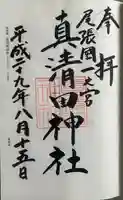 奉拝
尾張國一宮
真清田神社
平成二十九年八月十五日